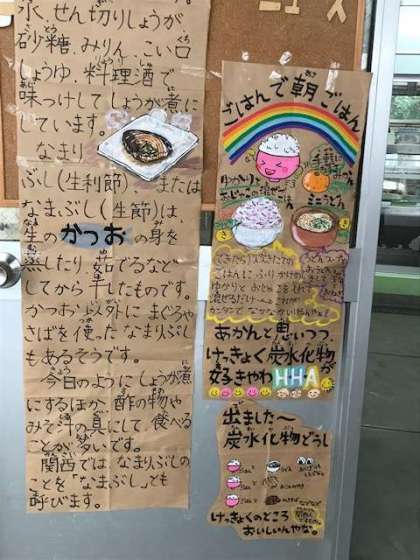 ニュース
水、せん切りしょうが、
砂糖、みりん、こい口
しょうゆ、料理酒で
味つけしてしょうが煮に
しています。
なまり
ぶし(生利節)、または
なまぶし(生節)は、
生のかつおの身を
蒸したり、茹でるなど
してから干したものです。
かつお以外にまぐろや
さばを使ったなまりぶし
もあるそうです。
今日のようにしょうが煮
にするほか、酢の物や
みそ汁の具にして食べる
ことが多いです。
関西ではなまりぶしの
ことを「なまぶし」でも
呼びます。
ごはんで朝ごはん
ゆかりと
ミニうどん
ごはんにふりかけの
ゆかりと
混ぜるだけ〜
あかんと思いつつ、
けっきょく炭水化物が
好きやわ HHA
出ました〜
炭水化物どうし
ごはんと
ごはんと
ごはんと
けっきょくのところ
おいしいんやな。